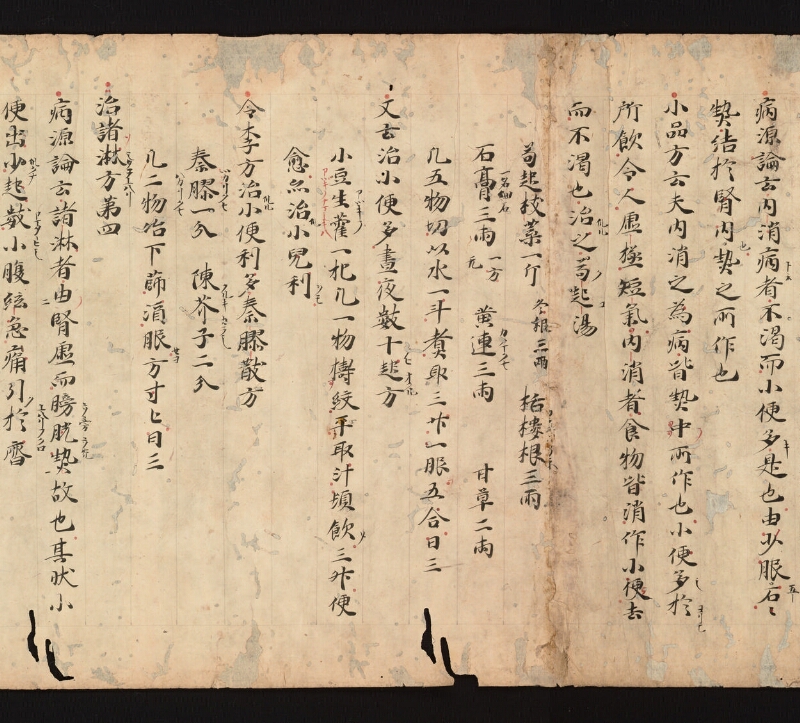 病源論云内消病者不渇而小便多是也由少服石〻
𤍠結於腎内𤍠之所作也
小品方云夫内消之為病皆𤍠中所作也小便多於
所飲令人虚極短氣内消者食物皆消作小便去
而不渇也治之苟起湯
苟起枝葉一斤 冬根三兩 栝樓根三兩
石膏三兩 一方 黄連三兩 甘草二兩
凡五物切以水一斗煑取三升一服五合日三
又云治小便多晝夜數十起方
小豆生藿一把凡一物擣絞取汁頓飲三升便
愈亦治小兒利
令李方治小便利多秦膠散方
秦膠一分 陳芥子二分
凡二物冶下篩酒服方寸匕日三
治諸淋方第四
病源論云諸淋者由腎虚而膀胱𤍠故也其狀小
便出少起數小腹弦急痛引於齊